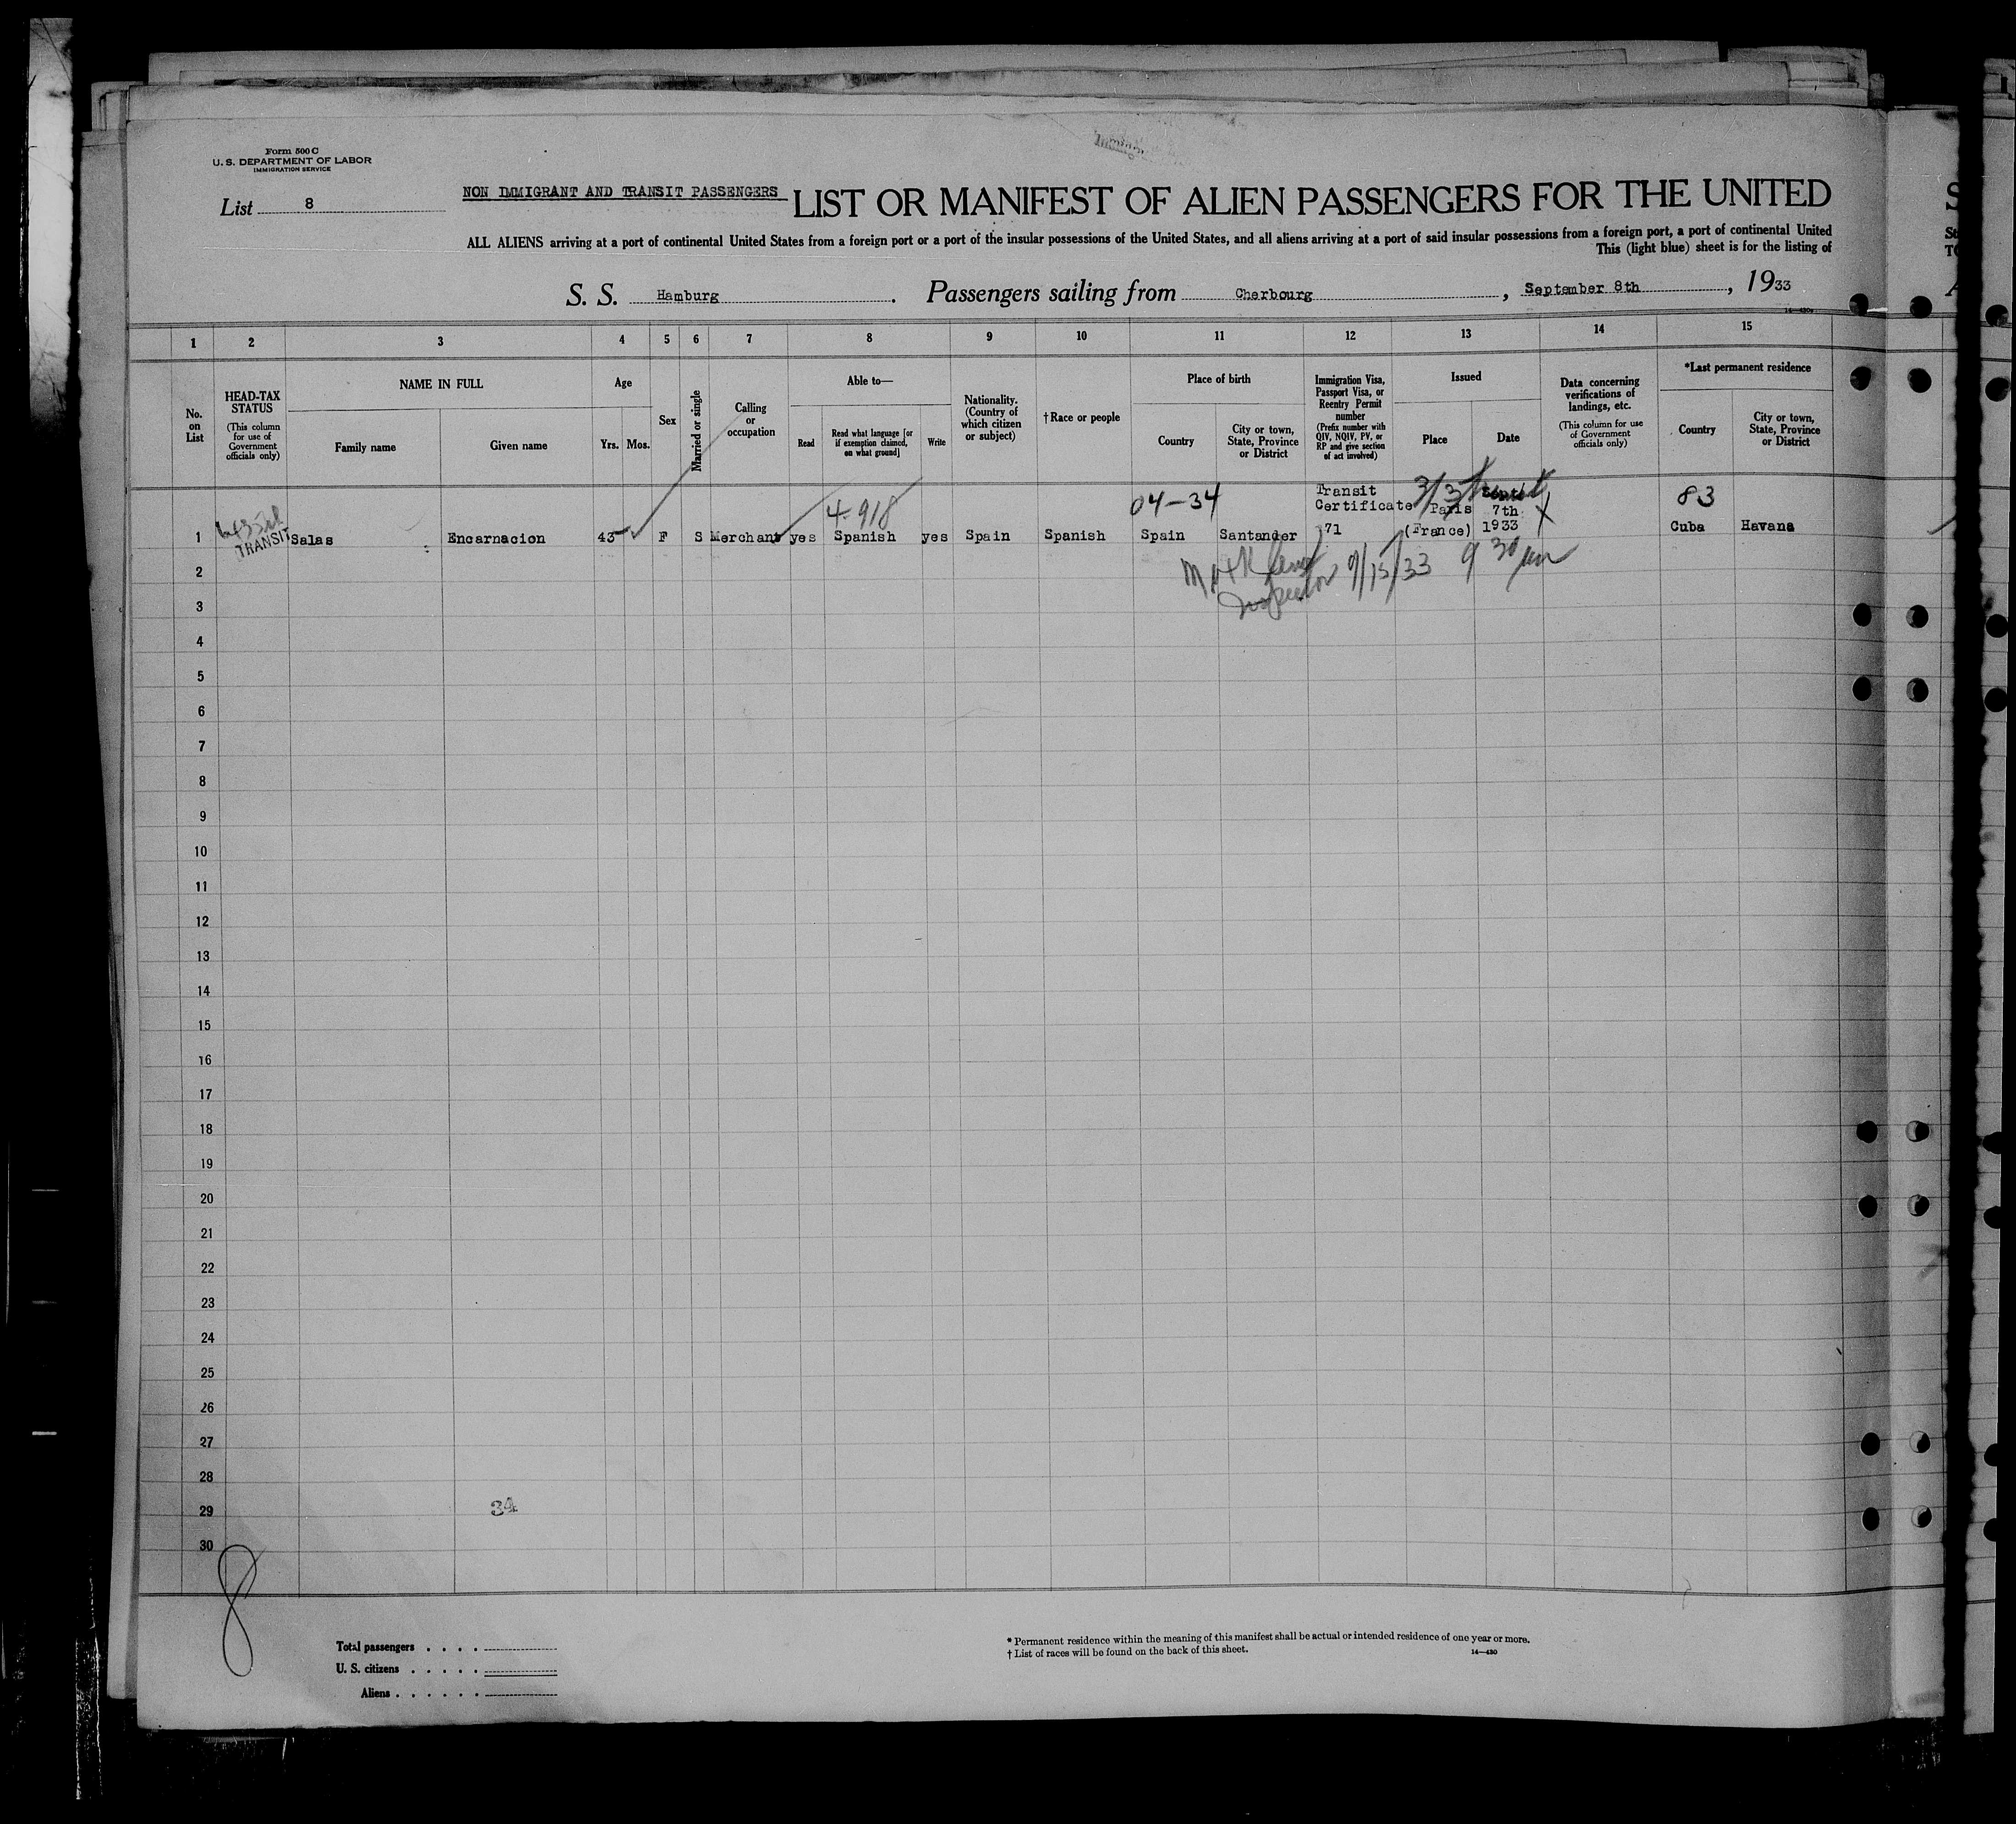 Form 500 C
U. S. DEPARTMENT OF LABOR
IMMIGRATION SERVICE
List 8
NON IMMIGRANT AND TRANSIT PASSENGERS LIST OR MANIFEST OF ALIEN PASSENGERS FOR THE UNITED
ALL ALIENS arriving at a port of continental United States from a foreign port or a port of the insular possessions of the United States, and all aliens arriving at a port of said insular possessions from a foreign port, a port of continental United
This (light blue) sheet is for the listing of
S. S. Hamburg . Passengers sailing from Cherbourg , September 8th , 1933
1 2 3 4 5 6 7 8 9 10 11 12 13 14 15
No. on List
HEAD-TAX STATUS (This column for use of Government officials only)
NAME IN FULL
Family name
Given name
Age
Yrs. Mos.
Sex
Married or single
Calling or occupation
Able to—
Read
Read what language [or if exemption claimed, on what ground]
Write
Nationality. (Country of which citizen or subject)
†Race or people
Place of birth
Country
City or town, State, Province or District
Immigration Visa, Passport Visa, or Reentry Permit number (Prefix number with QIV, NQIV, PV, or RP and give section of act involved)
Issued
Place
Date
Data concerning verifications of landings, etc. (This column for use of Government officials only)
*Last permanent residence
Country
City or town, State, Province or District
4-918
04-34
83
1 TRANSIT Salas Encarnacion 43 F S Merchant yes Spanish yes Spain Spanish Spain Santander Transit Certificate 71 Paris (France) Sept. 7th 1933 Cuba Havana
Inspector 9/15/33 9 30
2
3
4
5
6
7
8
9
10
11
12
13
14
15
16
17
18
19
20
21
22
23
24
25
26
27
28
29
34
30
8
Total passengers . . . .
U. S. citizens . . . . .
Aliens . . . . . .
* Permanent residence within the meaning of this manifest shall be actual or intended residence of one year or more.
† List of races will be found on the back of this sheet.
14—430